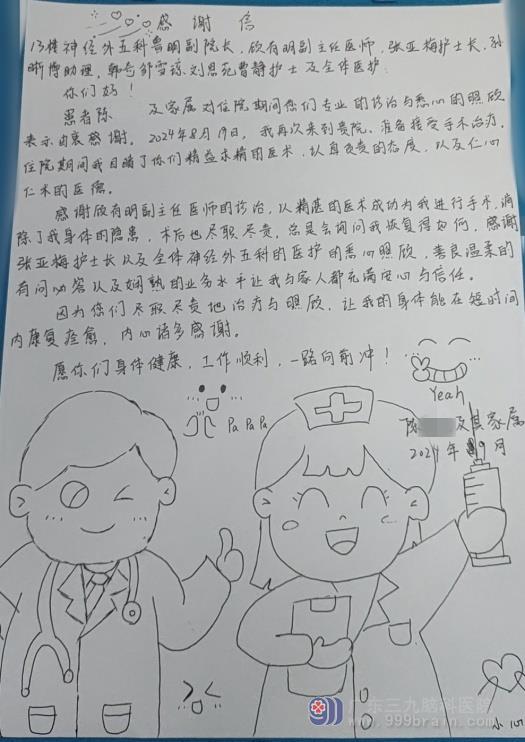 感谢信
13楼神经外五科鲁明副院长、欣有明副主任医师,张亚梅护士长,孙
晰博助理,韩奇 邹雪琼 刘思苑 曹静护士及全体医护:
你们好!
患者陈 及家属对住院期间你们专业的诊治与悉心的照顾
表示由衷感谢。2024年8月19日,我再次来到贵院,准备接受手术治疗。
住院期间我目睹了你们精益求精的医术,认真负责的态度,以及仁心
仁术的医德。
感谢欣有明副主任医师的诊治,以精湛的医术成功为我进行手术,消
除了我身体的隐患,术后也尽职尽责,总是会询问我恢复得如何,感谢
张亚梅护士长以及全体神经外五科的医护的悉心照顾,善良温柔的
有问必答以及娴熟的业务水平让我与家人都充满安心与信任。
因为你们尽职尽责地治疗与照顾,让我的身体能在短时间
内康复痊愈,内心诸多感谢。
愿你们身体健康,工作顺利,一路向前冲!
Yeah
Pa Pa Pa
陈 及其家属
2024年9月
广东三九脑科医院
www.999brain.com